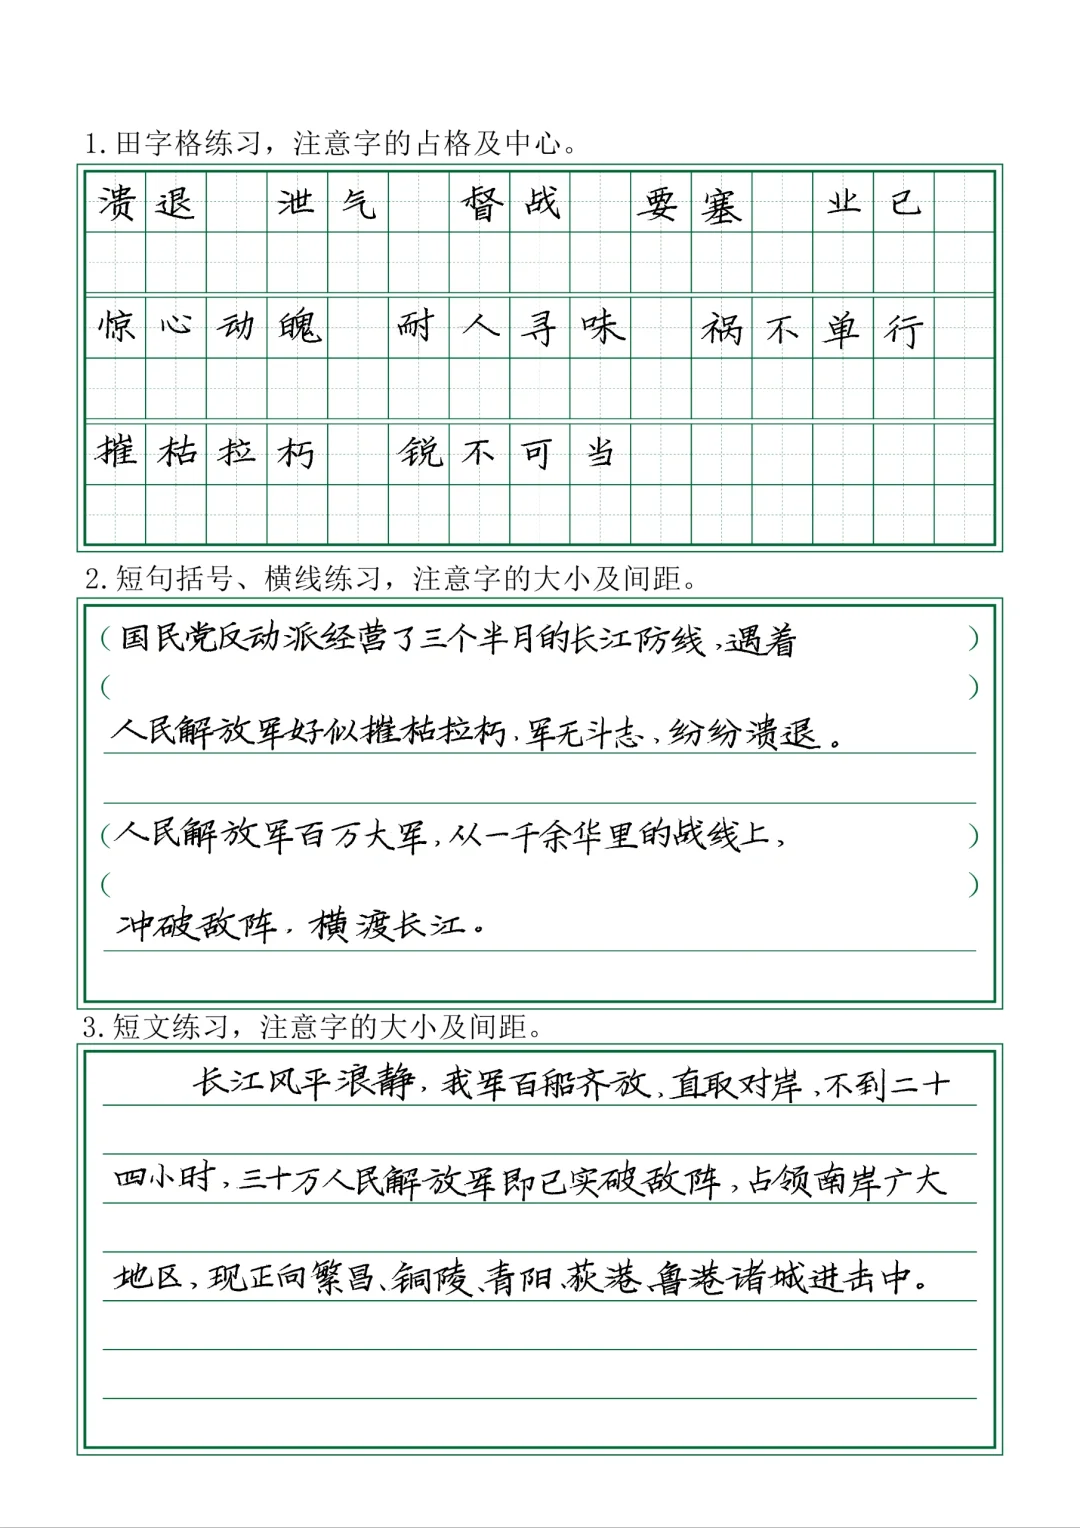 1.田字格练习，注意字的占格及中心。
溃退 泄气 督战 要塞 业已
惊心动魄 耐人寻味 祸不单行
摧枯拉朽 锐不可当
2.短句括号、横线练习，注意字的大小及间距。
（国民党反动派经营了三个半月的长江防线，遇着）
（）
人民解放军好似摧枯拉朽，军无斗志，纷纷溃退。
（人民解放军百万大军，从一千余华里的战线上，）
（）
冲破敌阵，横渡长江。
3.短文练习，注意字的大小及间距。
长江风平浪静，我军百船齐放，直取对岸，不到二十
四小时，三十万人民解放军即已突破敌阵，占领南岸广大
地区，现正向繁昌、铜陵、青阳、荻港、鲁港诸城进击中。